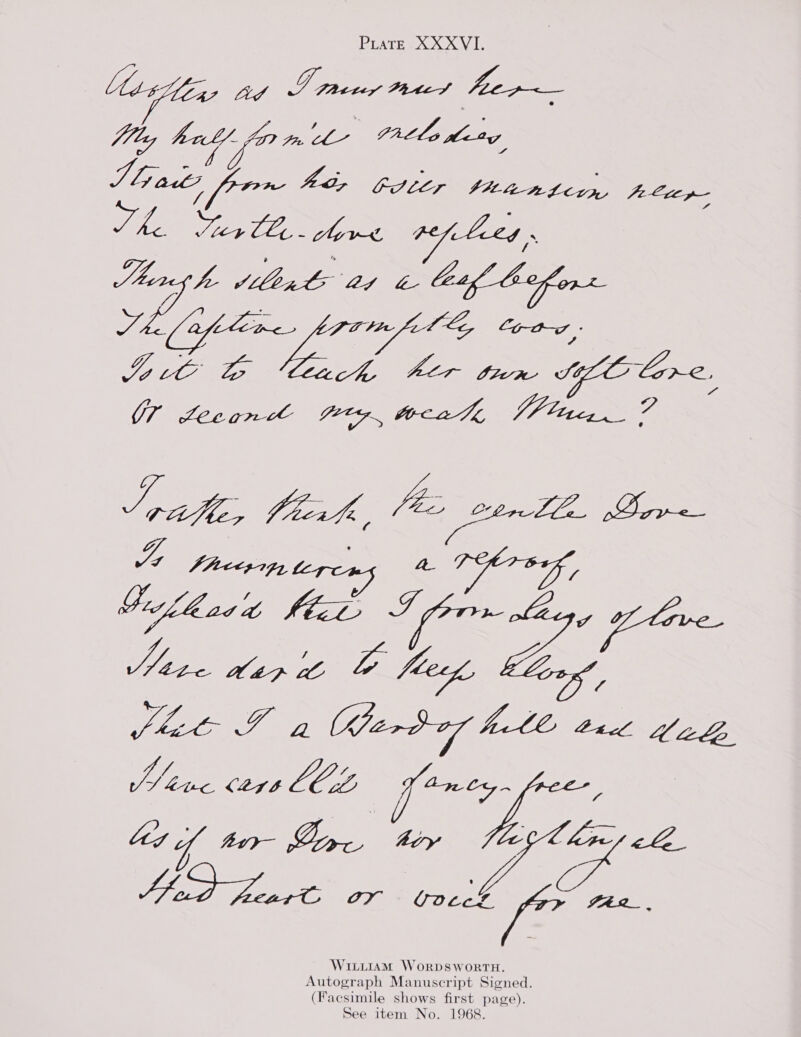 PLATE XXXVI.
As often as I murmur here
My half-form'd melodies,
Strait, from her osier mansion near,
The Turtle-dove replies;
Though silent as a leaf before
The Captive promptly coos;
Is it to teach her own soft lore,
Or second my weak Muse?
I rather think, the gentle Dove
Is murmuring a reproof,
Displeas'd that I from Lays of love
Have dar'd to keep aloof,
That I a Bard of hill and dale
Have caroll'd fancy-free,
As if nor Dove nor Nightingale
Had heart or voice for me.
WILLIAM WORDSWORTH.
Autograph Manuscript Signed.
(Facsimile shows first page).
See item No. 1968.